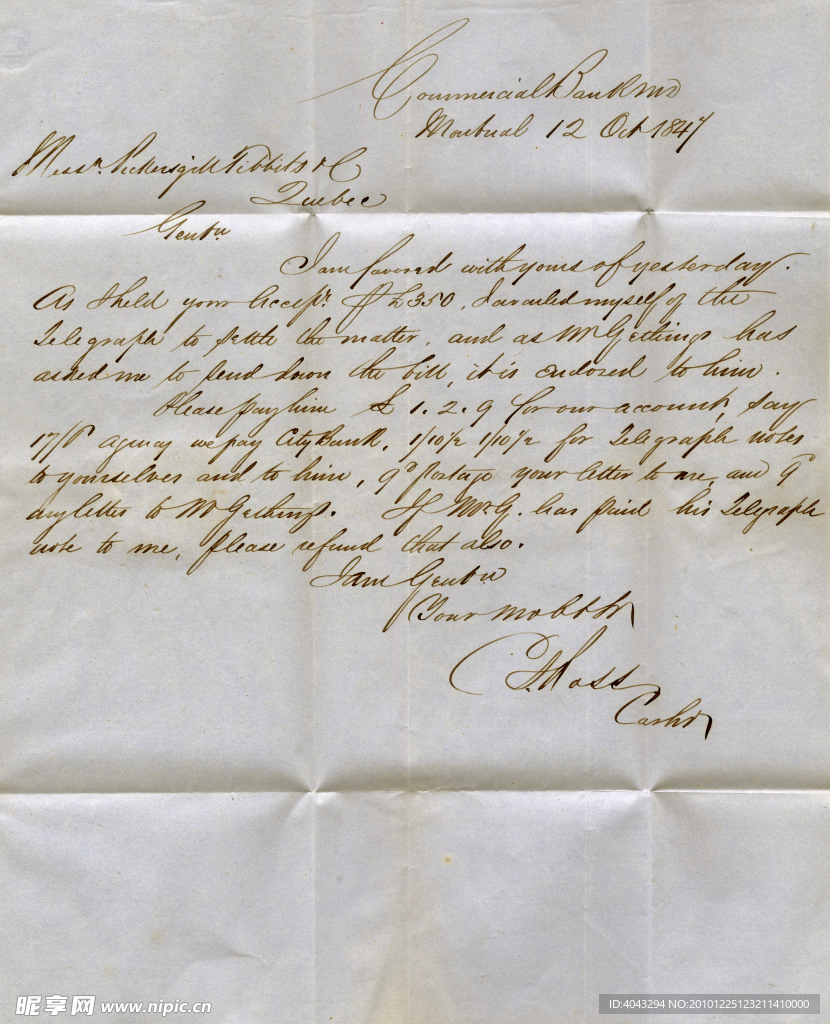 Commercial Bank MD
Montreal 12 Oct 1847
Messrs. Pickersgill Tibbits & C
Quebec
Gentn
I am favored with yours of yesterday.
As I held your Accepce. of £350, I availed myself of the
Telegraph to settle the matter, and as Mr Gethings has
asked me to send down the bill, it is endorsed to him.
Please pay him £1.2.9 for our account, say
17/6 agency we pay City Bank, 1/10½ 1/10½ for Telegraph notes
to yourselves and to him, 9d postage your letter to me, and 9d
my letter to Mr Gethings. If Mr G. has paid his Telegraph
note to me, please refund that also.
I am Gentn
Your mo obt Sr
Ross
Cashr
昵享网 www.nipic.cn
ID:4043294 NO:20101225123211410000